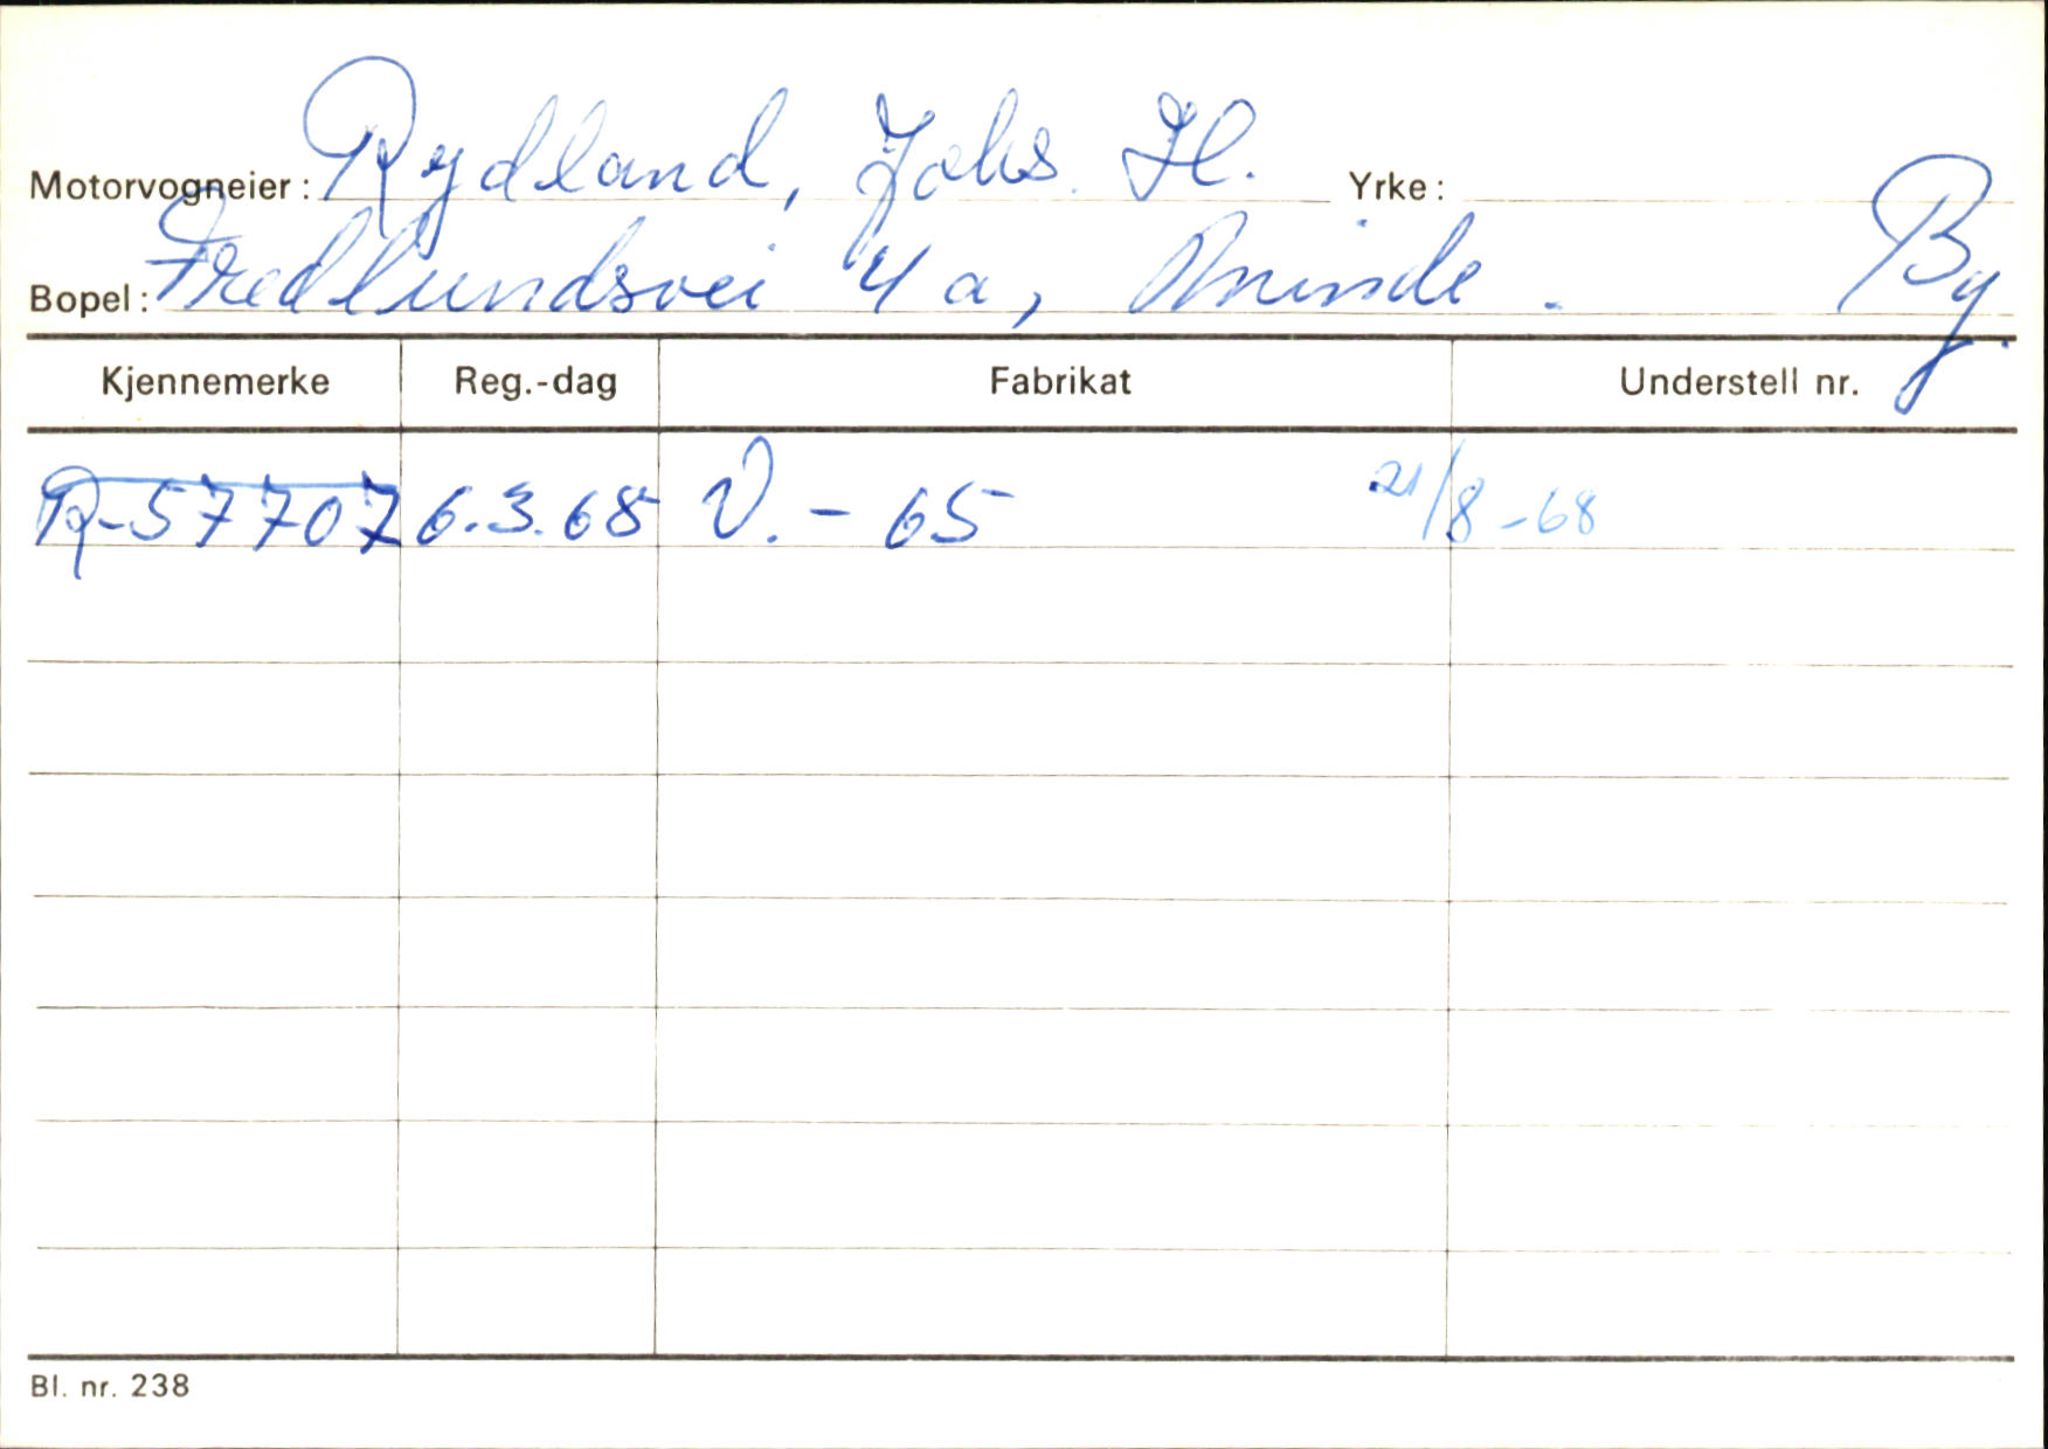 Motorvogneier: Rydland, Johs. H. Yrke:
Bopel: Fredlundsvei 4 a, Minde. By.
Kjennemerke Reg.-dag Fabrikat Understell nr.
R-57707 6.3.68 V. - 65 21/8-68
Bl. nr. 238